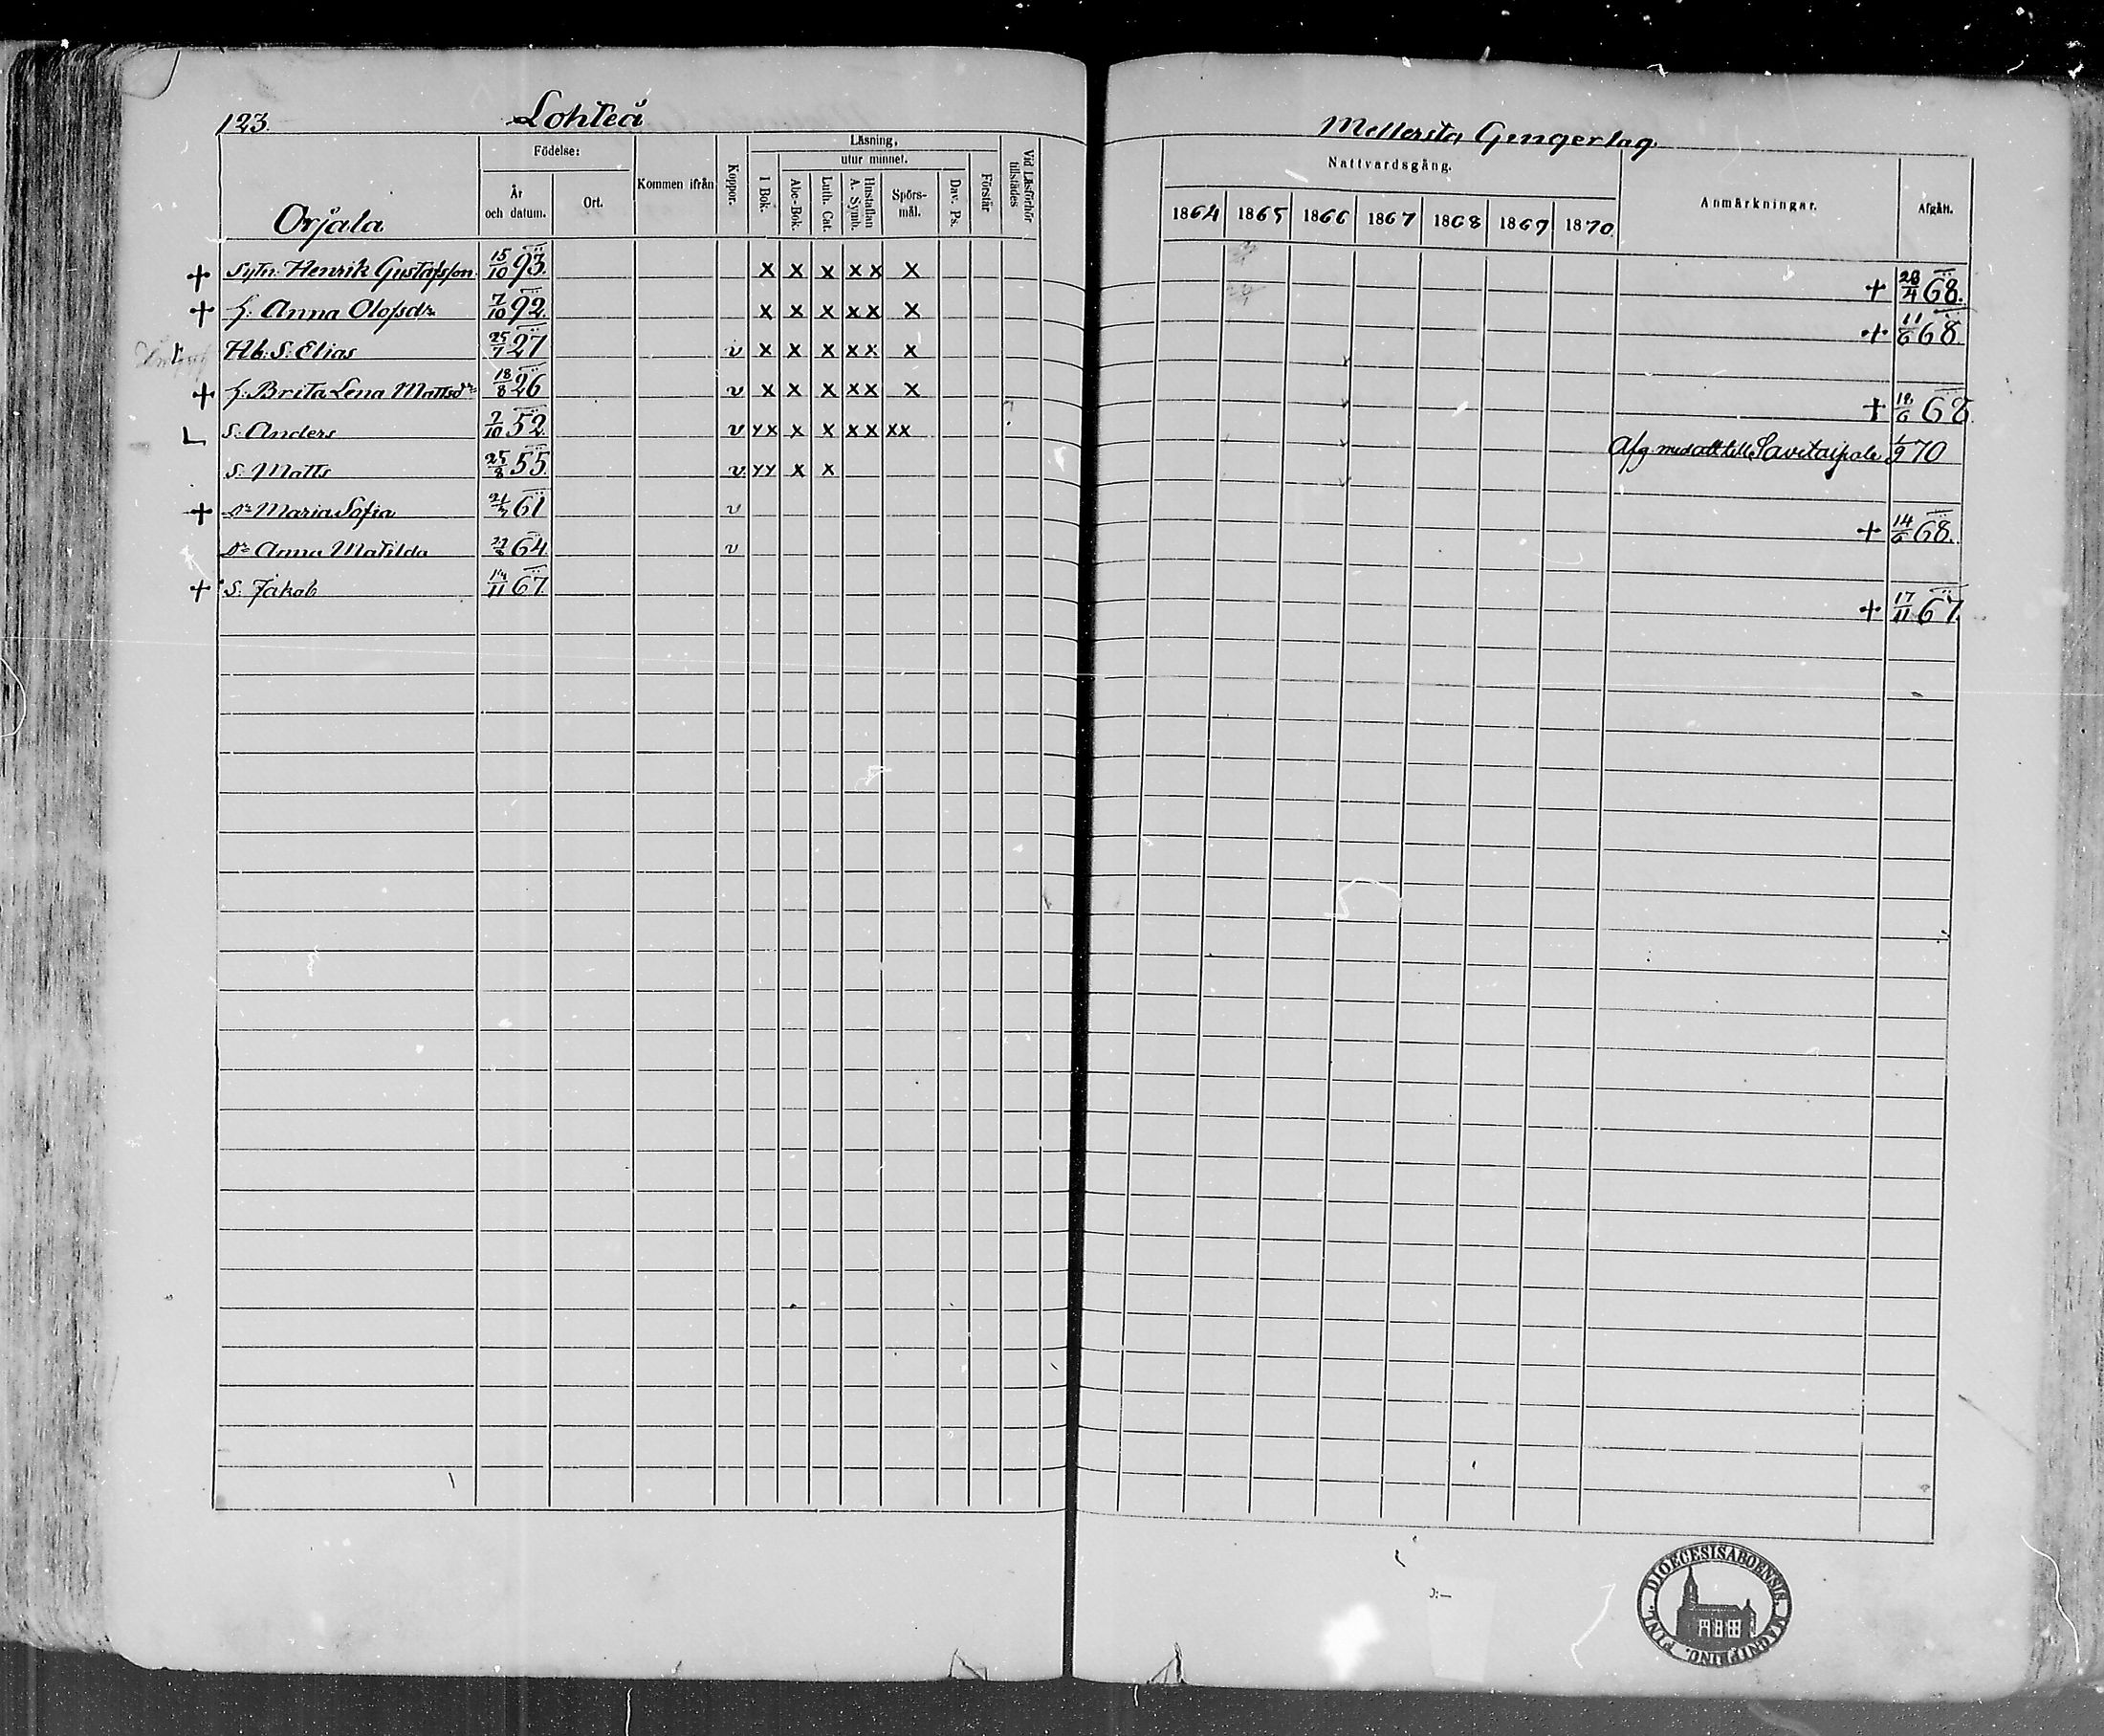 123. Lohteå
Mellersta Gingerlag.
Födelse:
Läsning,
utur minnet.
År och datum.
Ort.
Kommen ifrån
Koppor.
I Bok.
Abc-Bok.
Luth. Cat.
Hustaflan A. Symb.
Spörs-mål.
Dav. Ps.
Förstår
Vid Läsförhör tillstädes
Nattvardsgång.
1864 1865 1866 1867 1868 1869 1870.
Anmärkningar.
Afgått.
Orjala
+ Sytn. Henrik Gustafsson 15/10 93. x x x x x x + 28/4 68.
+ h. Anna Olofsdr 7/10 92. x x x x x x + 11/6 68.
Hb. S. Elias 25/7 27 v x x x x x x
+ h. Brita Lena Mattsdr 18/8 26 v x x x x x x + 18/6 68
L S. Anders 2/10 52. v x x x x x x x x Afg. med att till Savitaipale 70
S. Matts 25/8 55. v x x x x
+ Dr Maria Sofia 61 v + 14/6 68.
Dr Anna Matilda 64. v
+ S. Jakob 14/11 67. + 17/11 67.
FINL. DIOECESIS ABOENSIS